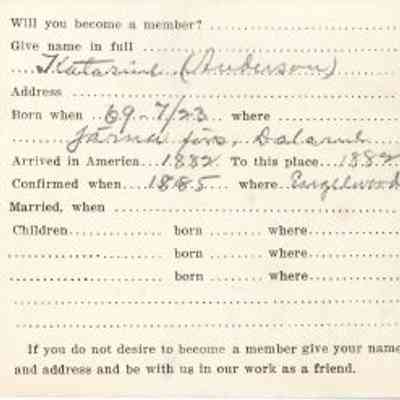 Will you become a member?
Give name in full
Katarina (Anderson)
Address
Born when 69-7/23 where
Järna förs, Dalarne
Arrived in America 1882 To this place 1882
Confirmed when 1885 where Englewood
Married, when
Children born where
born where
born where
If you do not desire to become a member give your name
and address and be with us in our work as a friend.